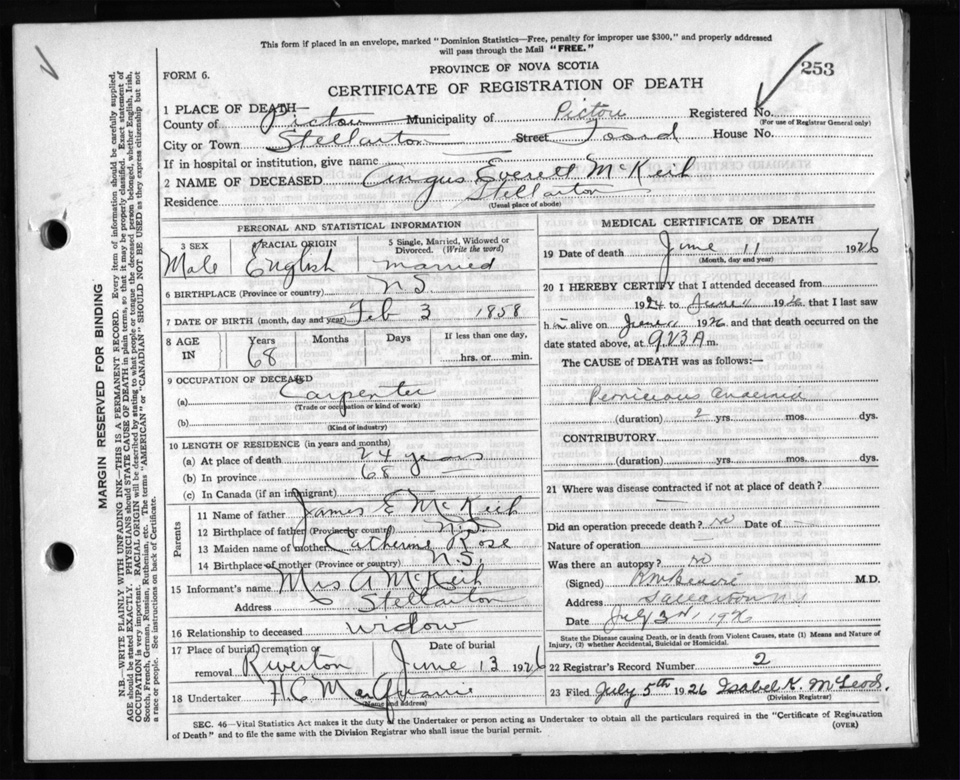 This form if placed in an envelope, marked "Dominion Statistics—Free, penalty for improper use $300," and properly addressed
will pass through the Mail "FREE."
PROVINCE OF NOVA SCOTIA
253
FORM 6.
CERTIFICATE OF REGISTRATION OF DEATH
1 PLACE OF DEATH—
County of Pictou Municipality of Pictou Registered No.
(For use of Registrar General only)
City or Town Stellarton Street Foord House No.
If in hospital or institution, give name
2 NAME OF DECEASED Angus Everett McKeih
Residence Stellarton
(Usual place of abode)
MARGIN RESERVED FOR BINDING
N.B.—WRITE PLAINLY WITH UNFADING INK—THIS IS A PERMANENT RECORD. Every item of information should be carefully supplied.
AGE should be stated EXACTLY. PHYSICIANS should STATE CAUSE OF DEATH in plain terms, so that it may be properly classified. Exact statement of
OCCUPATION is very important. RACIAL ORIGIN will be described by stating to what people or tongue the deceased person belonged, whether English, Irish,
Scotch, French, German, Russian, Ruthenian, etc. The terms "AMERICAN" or "CANADIAN" SHOULD NOT BE USED as they express citizenship but not
a race or people. See instructions on back of Certificate.
PERSONAL AND STATISTICAL INFORMATION
3 SEX RACIAL ORIGIN 5 Single, Married, Widowed or
Divorced. (Write the word)
Male English married
6 BIRTHPLACE (Province or country) N.S.
7 DATE OF BIRTH (month, day and year) Feb 3 1858
8 AGE IN Years Months Days If less than one day,
68 hrs. or min.
9 OCCUPATION OF DECEASED
(a) Carpenter
(Trade or occupation or kind of work)
(b)
(Kind of industry)
10 LENGTH OF RESIDENCE (in years and months)
(a) At place of death 24 years
(b) In province 68
(c) In Canada (if an immigrant)
Parents
11 Name of father James E McKeih
12 Birthplace of father (Province or country) N.S.
13 Maiden name of mother Catherine Rose
14 Birthplace of mother (Province or country) N.S.
15 Informant's name Mrs A McKeih
Address Stellarton
16 Relationship to deceased widow
17 Place of burial, cremation or Date of burial
removal Riverton June 13 1926
18 Undertaker H C
(Name and address)
MEDICAL CERTIFICATE OF DEATH
19 Date of death June 11 1926
(Month, day and year)
20 I HEREBY CERTIFY that I attended deceased from
1924 to June 11 1926 that I last saw
him alive on June 11 1926 and that death occurred on the
date stated above, at 9.23 A m.
The CAUSE of DEATH was as follows:—
Pernicious anaemia
(duration) 2 yrs. mos. dys.
CONTRIBUTORY
(duration) yrs. mos. dys.
21 Where was disease contracted if not at place of death? —
Did an operation precede death? no Date of —
Nature of operation —
Was there an autopsy? no
(Signed) M.D.
Address Stellarton NS
Date July 3rd, 1926
State the Disease causing Death, or in death from Violent Causes, state (1) Means and Nature of
Injury, (2) whether Accidental, Suicidal or Homicidal.
22 Registrar's Record Number 2
23 Filed July 5th 1926 Isabel K. McLeod.
(Division Registrar)
SEC. 46—Vital Statistics Act makes it the duty of the Undertaker or person acting as Undertaker to obtain all the particulars required in the "Certificate of Registration
of Death" and to file the same with the Division Registrar who shall issue the burial permit.
(OVER)